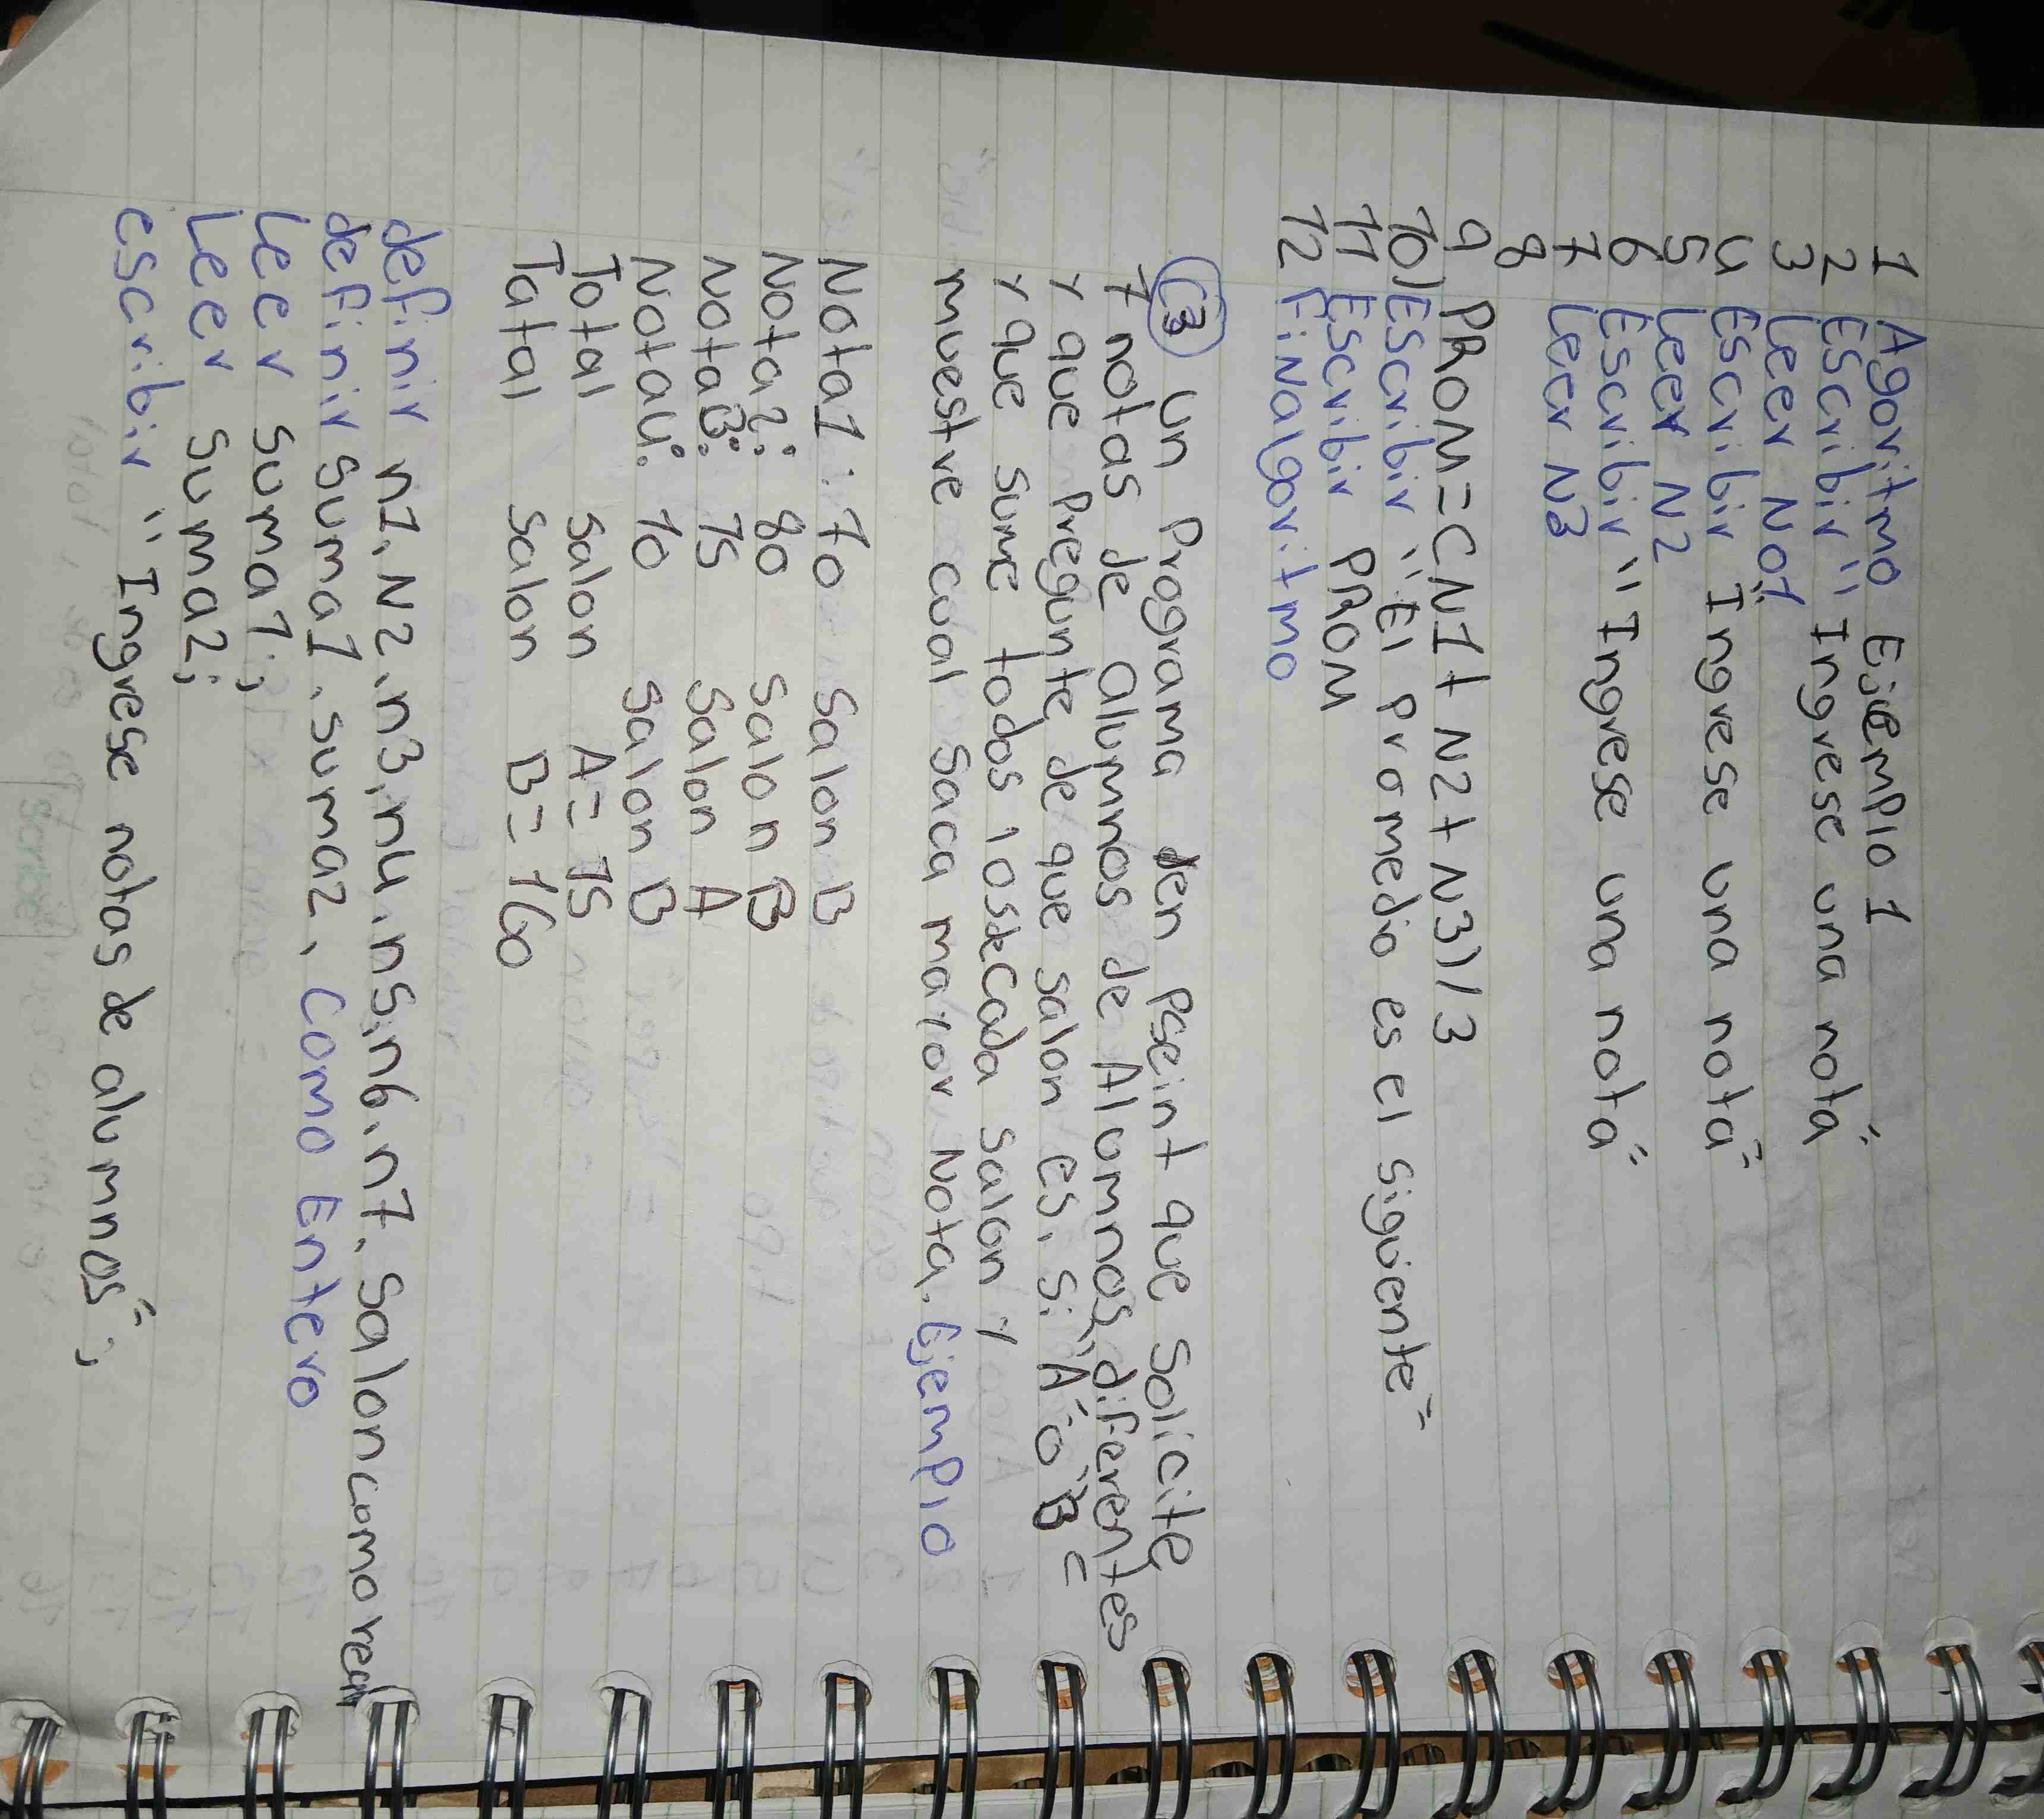 1 Agoritmo Ejemplo 1
2 Escribir "Ingrese una nota"
3 Leer No1
4 Escribir Ingrese una nota"
5 Leer N2
6 Escribir "Ingrese una nota"
7 Leer N3
8
9 PROM=CN1+N2+N3)/3
10) Escribir "El promedio es el siguiente"
11 Escribir PROM
12 FiNalgoritmo
(3) un Programa den Pseint que Solicite
7 notas de alumnos de Alomnos diferentes
y que Pregunte de que salon es. si "A" o "B"
y que sume todos los de Cada salon y
muestre cual saca mayor Nota. Ejemplo
Nota1: 70 Salon B
Nota2: 80 Salon B
NotaB: 75 Salon A
Nota4: 10 Salon B
Total Salon A= 75
Tatal Salon B= 160
definir n1, N2, n3, n4, n5, n6, n7, Salon como real
definir suma1, suma2, Como Entero
Leer suma1;
Leer suma2;
escribir "Ingrese notas de alumnos";